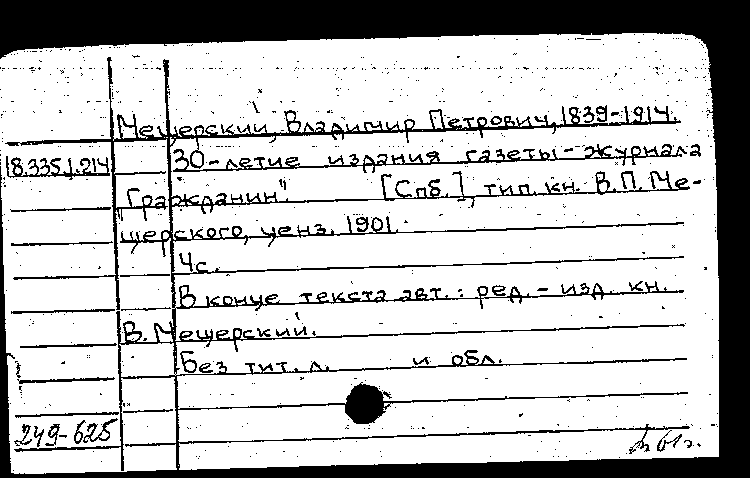 Мещерский, Владимир Петрович, 1839-1914.
18.335.1.214 30-летие издания газеты-журнала
„Гражданин“. [Спб.], тип. кн. В.П. Ме-
щерского, ценз. 1901.
4с.
В конце текста авт.: ред.- изд. кн.
В. Мещерский.
Без тит. л. и обл.
249-625
61г.